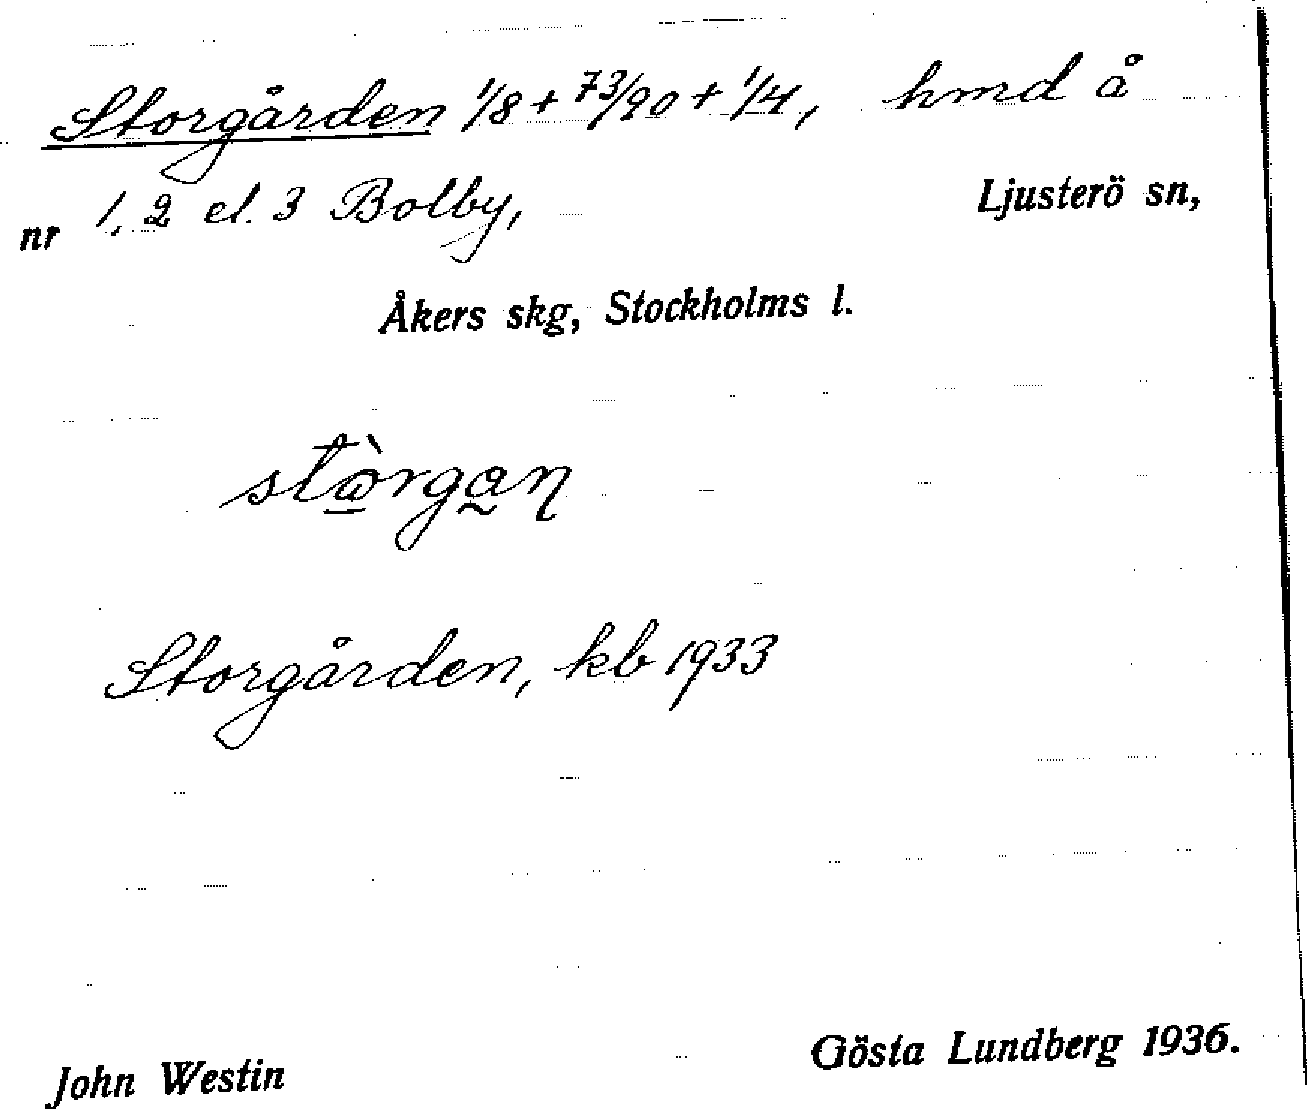 Storgården 1/8 + 73/90 + 1/4, hmd å
nr 1, 2 el. 3 Bolby, Ljusterö sn,
Åkers skg, Stockholms l.
stòrgan
Storgården, kb 1933
John Westin Gösta Lundberg 1936.